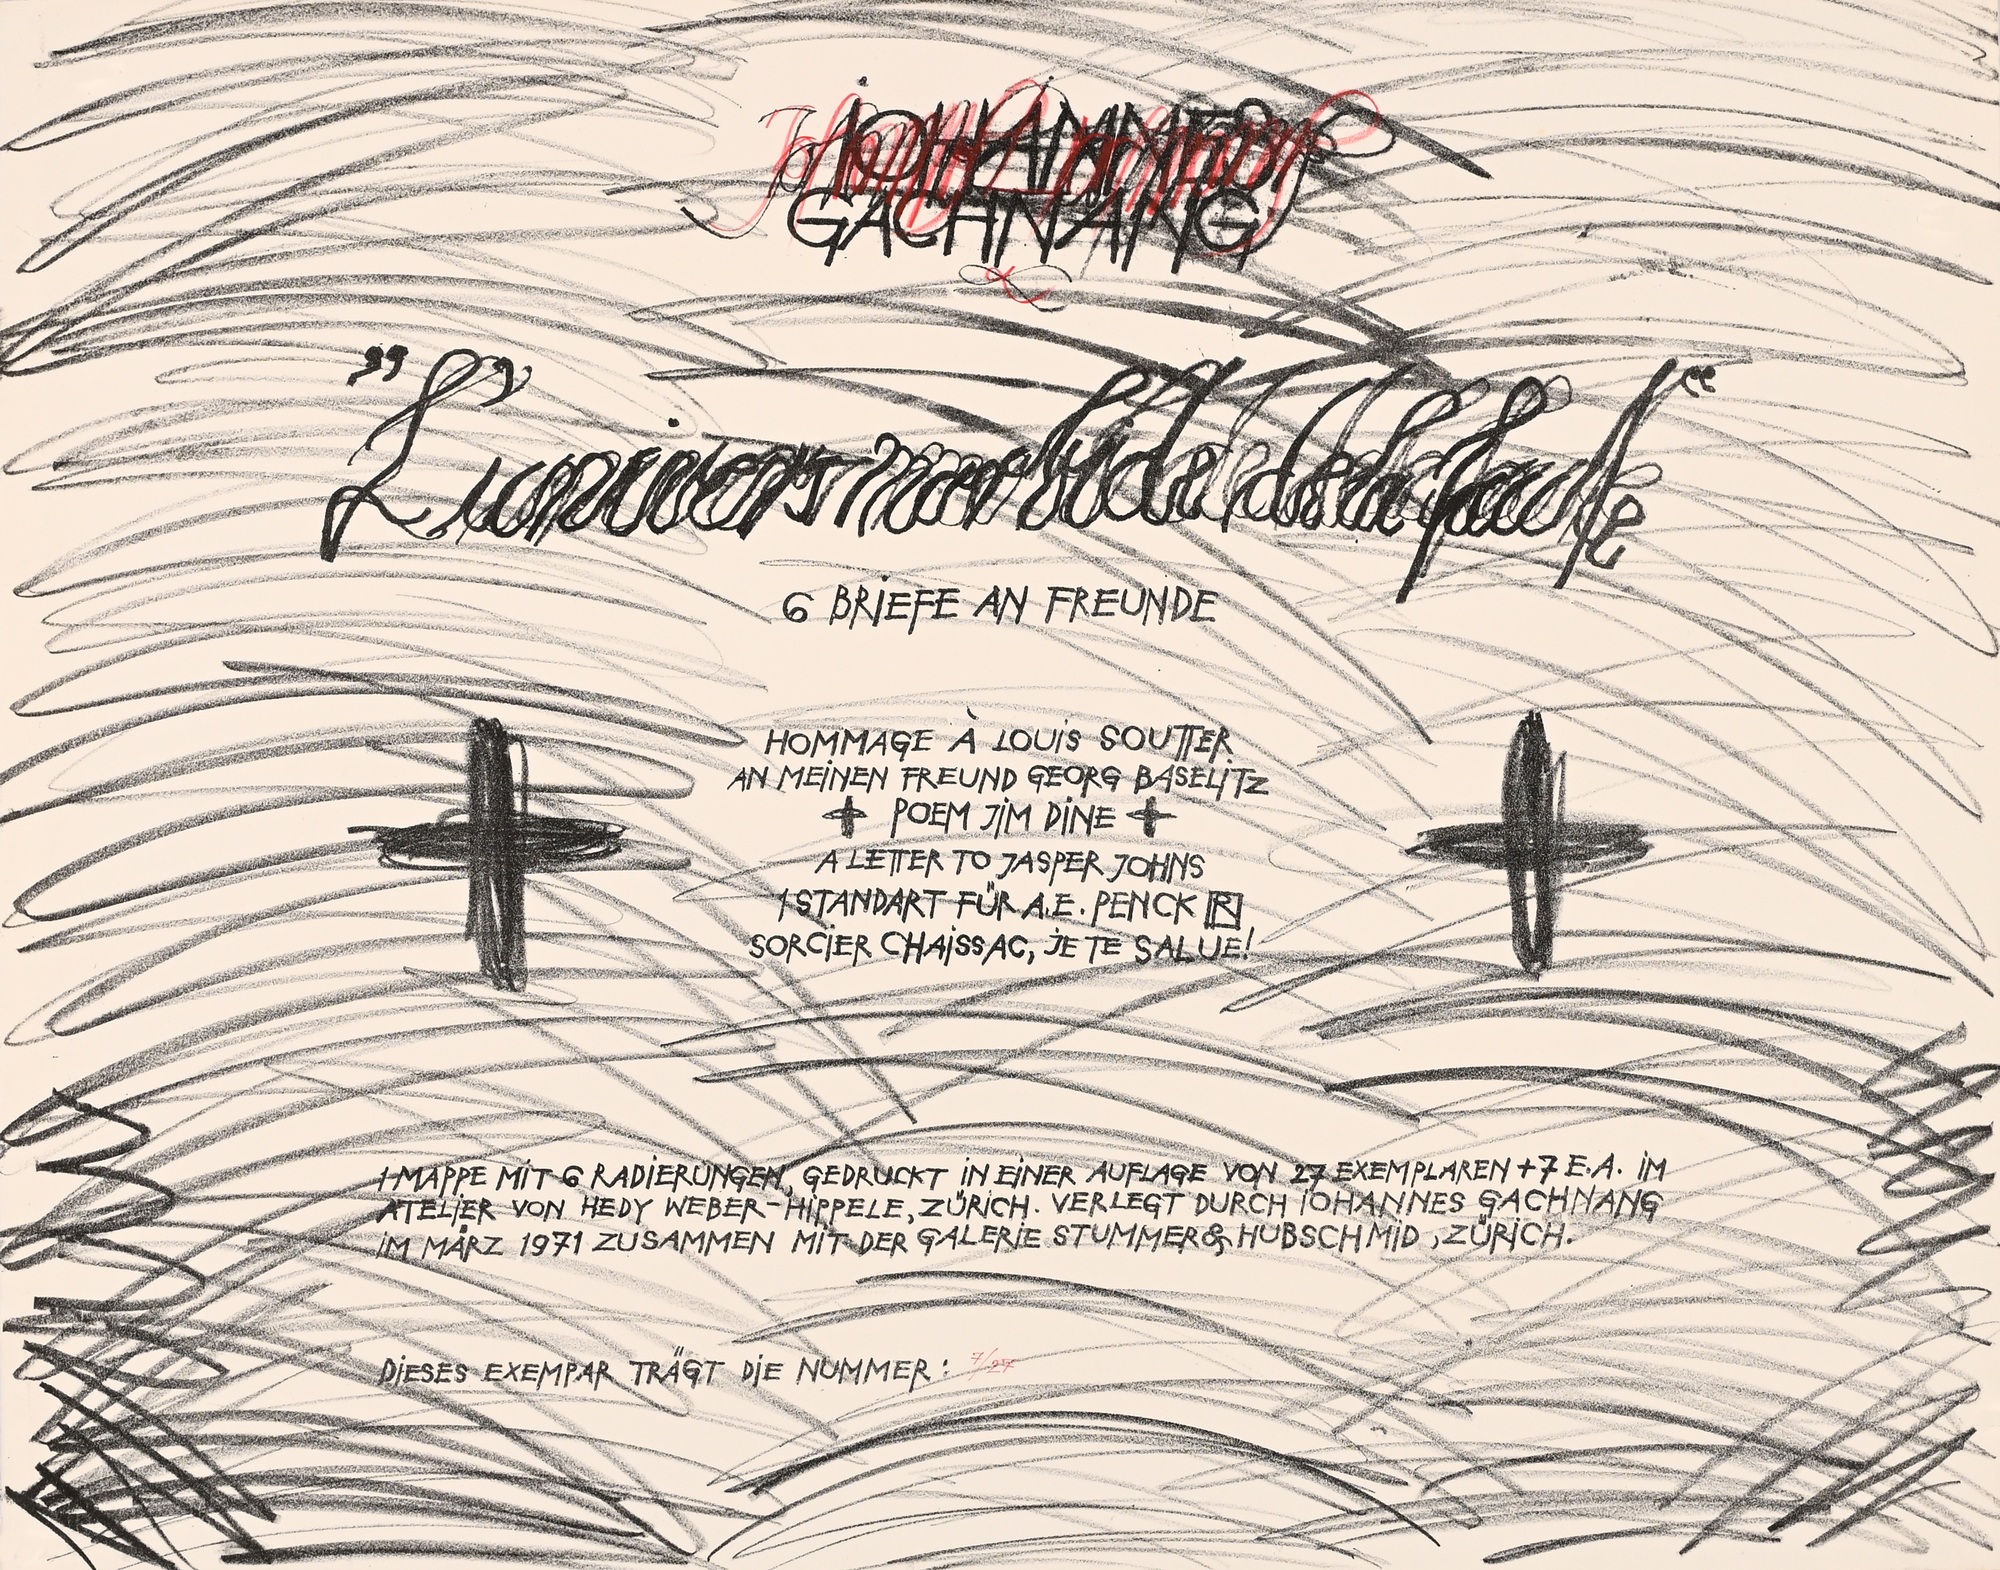 IOHANNES
GACHNANG
”L'univers morbide de la faute“
6 BRIEFE AN FREUNDE
HOMMAGE À LOUIS SOUTTER
AN MEINEN FREUND GEORG BASELITZ
POEM JIM DINE
A LETTER TO JASPER JOHNS
1 STANDART FÜR A.E. PENCK R
SORCIER CHAISSAC, JE TE SALUE!
1 MAPPE MIT 6 RADIERUNGEN, GEDRUCKT IN EINER AUFLAGE VON 27 EXEMPLAREN + 7 E.A. IM
ATELIER VON HEDY WEBER-HIPPELE, ZÜRICH. VERLEGT DURCH IOHANNES GACHNANG
IM MÄRZ 1971 ZUSAMMEN MIT DER GALERIE STUMMER & HUBSCHMID, ZÜRICH.
DIESES EXEMPAR TRÄGT DIE NUMMER: 7/27